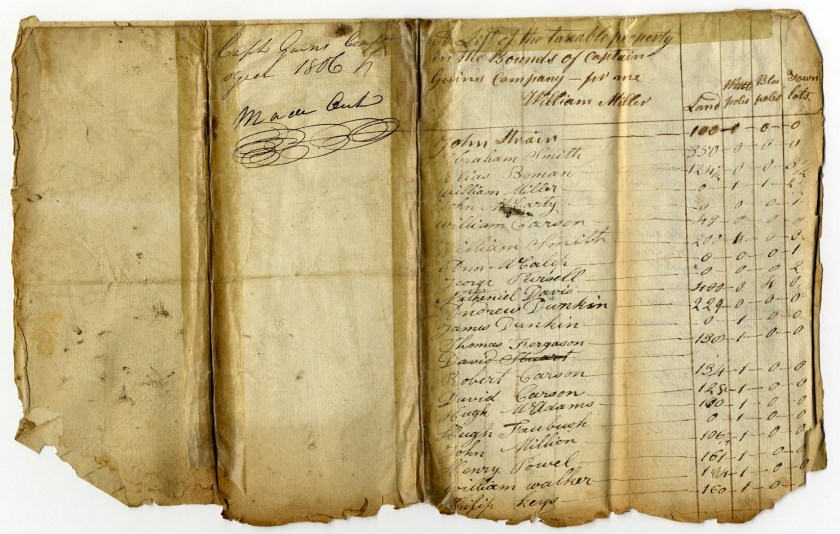 Capt Guins Comp
1806
Made Out
A List of the taxable property
in the Bounds of Captain
Guins Company — for one
William Miller
Land
White poles
Blac poles
Town lots
John Strain 100 - 0 - 0 - 0
Abraham Smith 350 - 0 - 0 - 0
Elias Boman
William Miller 0 - 1 - 1
John McCarty 0 - 0 - 0 - 1
William Carson 49 - 0 - 0 - 0
William Smith
Ann McCalip 0 - 0 - 0 - 1
George Pursell 0 - 0 - 0 - 2
Nathaniel Davis 400 - 0 - 4 - 0
Andrew Dunkin 229 - 0 - 0 - 0
James Dunkin 0 - 1 - 0 - 0
Thomas Fergason 150 - 1 - 0 - 0
David Stuart
Robert Carson 154 - 1 - 0 - 0
David Carson 125 - 1 - 0 - 0
Hugh McAdams 100 - 1 - 0 - 0
Hugh Faubush 0 - 1 - 0 - 0
John Million 106 - 1 - 0 - 0
Henry Powel 161 - 1 - 0 - 0
William walker
Philip keys 160 - 1 - 0 - 0